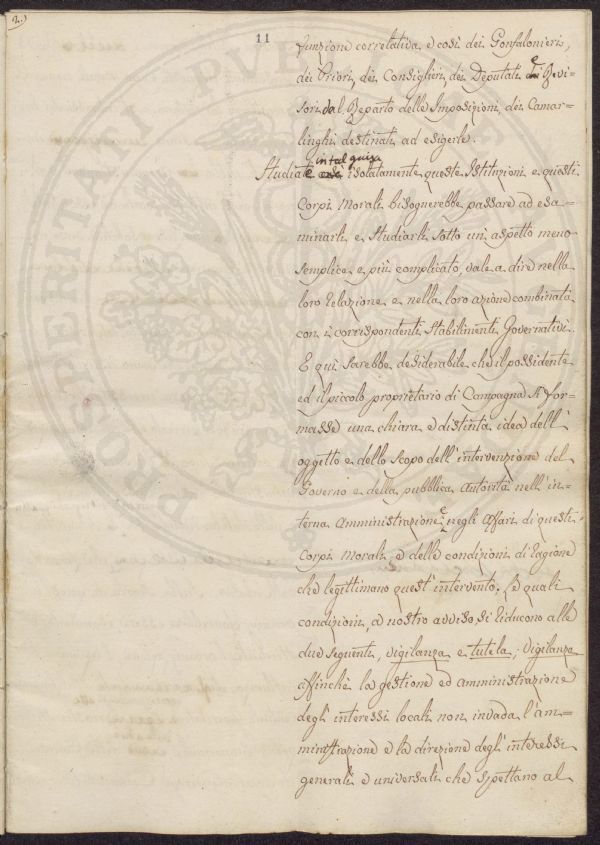 2.)
11
funzione correlativa e così dei Gonfalonieri,
dei Priori, dei Consiglieri, dei Deputati e Revi-
sori dal Reparto delle Imposizioni, dei Camar-
linghi destinati ad esigerle.
in tal guisa
Studiate isolatamente queste Istituzioni e questi
Corpi Morali bisognerebbe passare ad esa-
minarli e Studiarli sotto un aspetto meno
semplice e più complicato, vale a dire nella
loro relazione e nella loro azione combinata
con i corrispondenti Stabilimenti Governativi.
E qui sarebbe desiderabile che il possidente
ed il piccolo proprietario di Campagna si for-
masse una chiara e distinta idea dell'
oggetto e dello scopo dell'intervenzione del
Governo e della pubblica autorità nell'in-
terna amministrazione e negli affari di questi
Corpi Morali, e delle condizioni di ragione
che legittimano quest'intervento. Le quali
condizioni, a nostro avviso, si riducono alle
due seguenti, vigilanza e tutela; Vigilanza
affinchè la gestione ed amministrazione
degl'interessi locali non invada l'am-
ministrazione e la direzione degl'interessi
generali e universali che spettano al
PROSPERITATI PVBLICAE